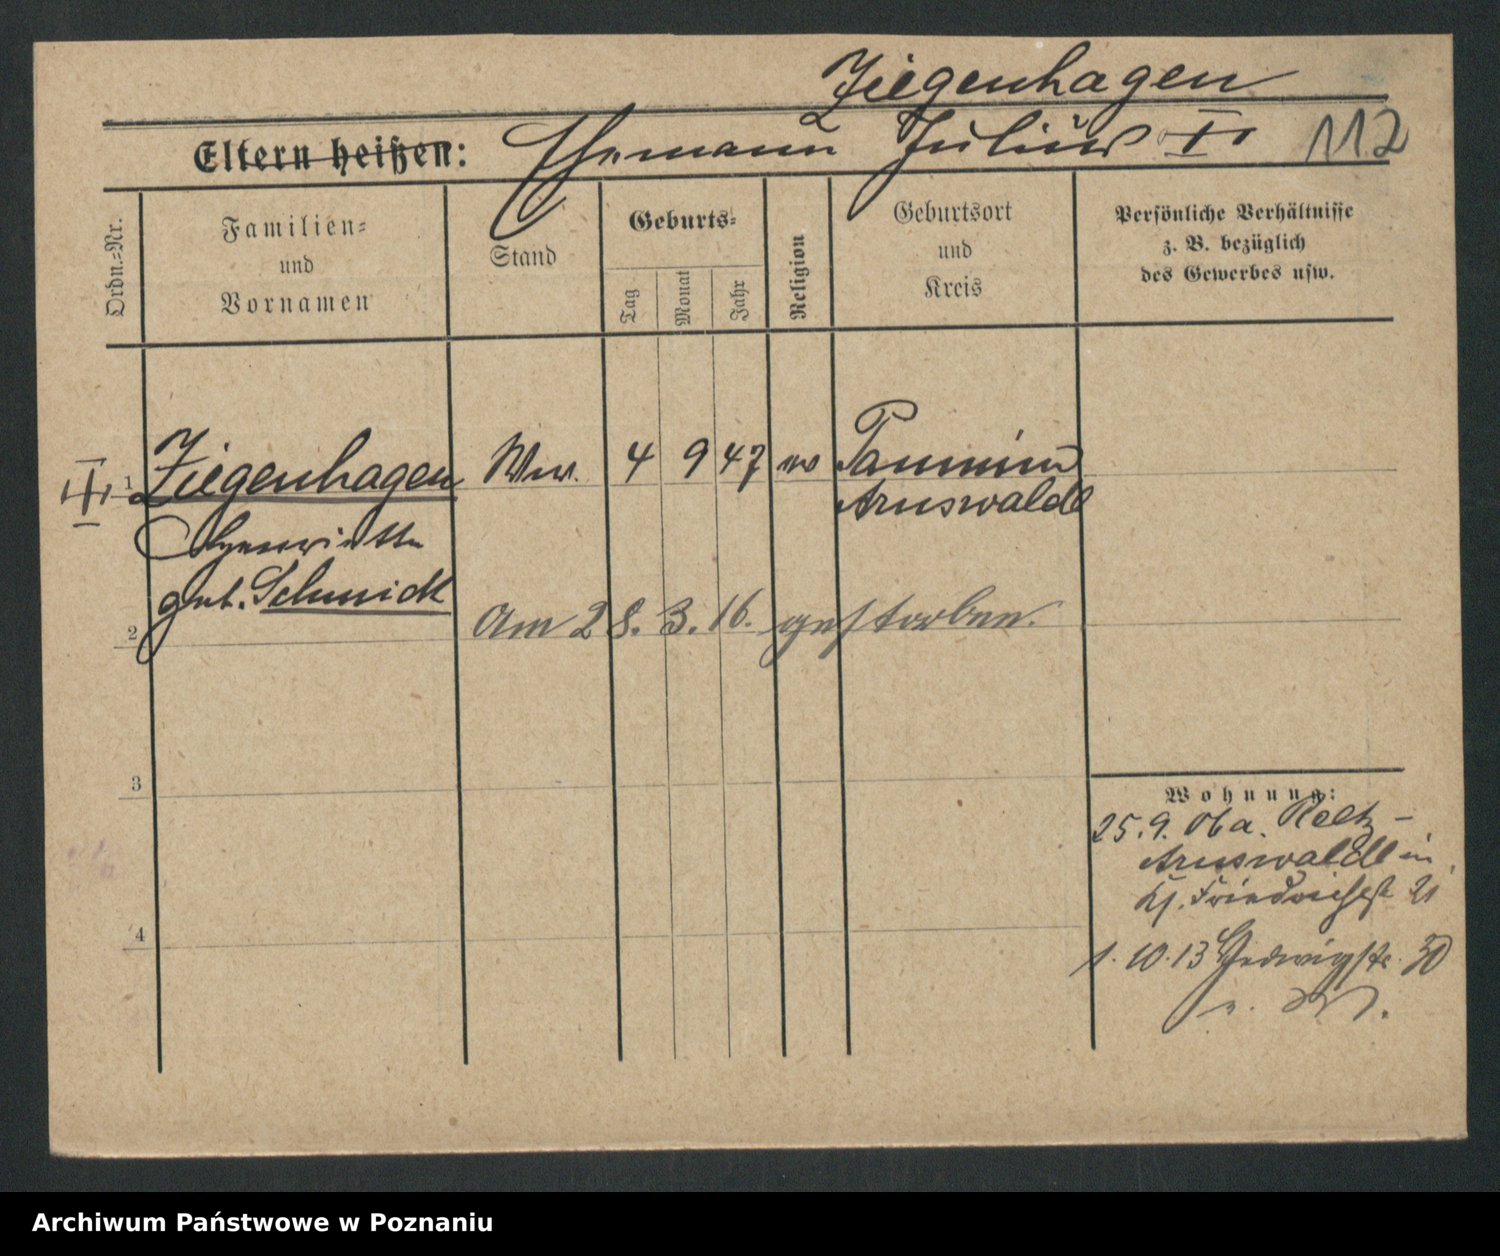 Ziegenhagen
Eltern heißen: Ehemann Julius † 112
Ordn.-Nr.
Familien-
und
Vornamen
Stand
Geburts-
Tag
Monat
Jahr
Religion
Geburtsort
und
Kreis
Persönliche Verhältnisse
z. B. bezüglich
des Gewerbes usw.
1 Ziegenhagen Ww. 4 9 47 Pammin
Arnswalde
Henriette
geb. Schmidt
2 Am 28. 3. 16. gestorben.
3
4
Wohnung:
25. 9. 06 a. Reetz-
Arnswalde in
Friedrichstr 21
1. 10. 13 Hedwigstr. 30
Archiwum Państwowe w Poznaniu